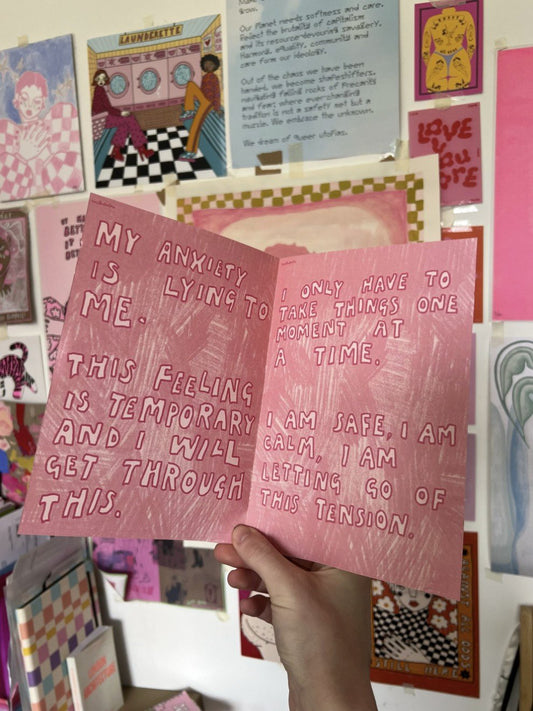 LAUNDERETTE
Our Planet needs softness and care.
Reject the brutality of capitalism
and its resource-devouring savagery.
Harmony, equality, community and
care form our ideology.
Out of the chaos we have been
handed, we become shapeshifters,
navigating falling rocks of Precarity
and fear, where ever-changing
tradition is not a safety net but a
muzzle. We embrace the unknown.
We dream of queer utopias.
LOVE
YOU
MORE
MY ANXIETY
IS LYING TO
ME.
THIS FEELING
IS TEMPORARY
AND I WILL
GET THROUGH
THIS.
I ONLY HAVE TO
TAKE THINGS ONE
MOMENT AT
A TIME.
I AM SAFE, I AM
CALM, I AM
LETTING GO OF
THIS TENSION.
STILL HERE